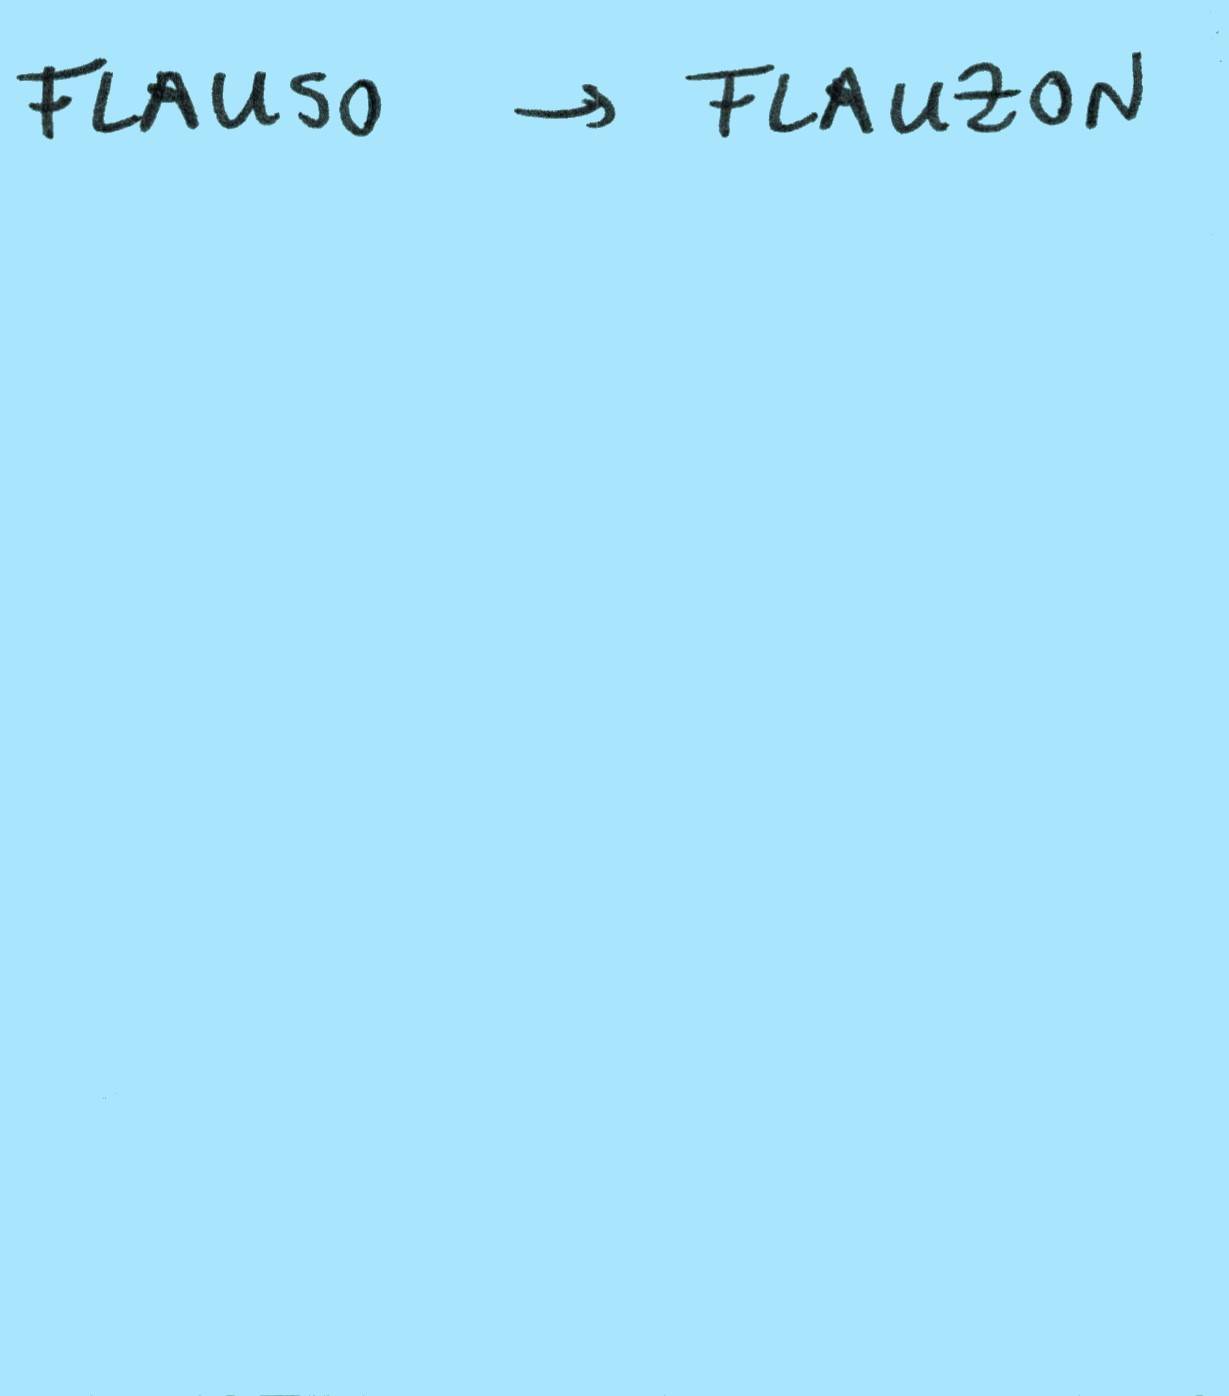 FLAUSO → FLAUZON